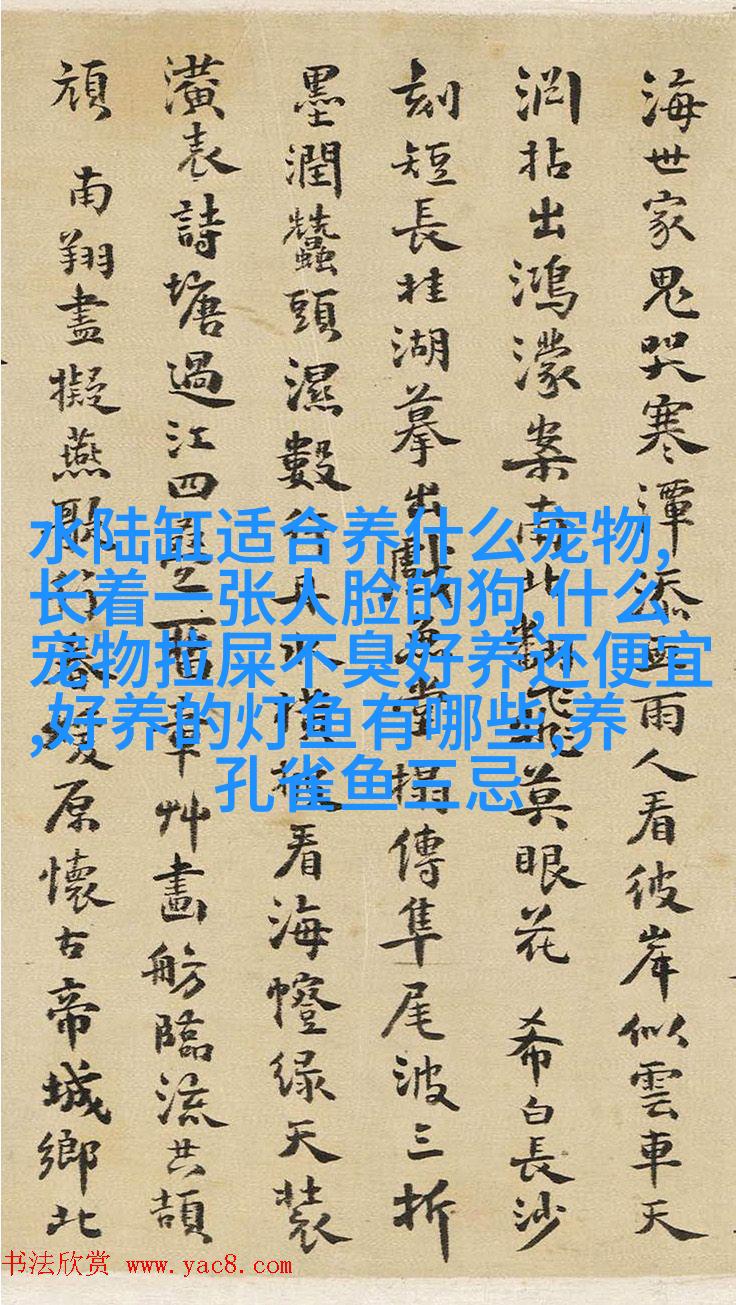 海世家鬼哭寒潭添雨人看彼岸似雲車天
渕拈出鴻濛案南北莫眼花 希白長沙
刻短長桂湖摹出搨傳隼尾波三折
墨潤蠶頭濕數行水橫看海幢緑天裝
潢表詩塘過江四草艸畫舫臨流共頡
頏 南翔盡擬燕歌行春原懷古帝城鄉北
水陆缸适合养什么宠物,
长着一张人脸的狗,什么
宠物拉屎不臭好养还便宜
,好养的灯鱼有哪些,养
孔雀鱼三忌
书法欣赏 www.yac8.com